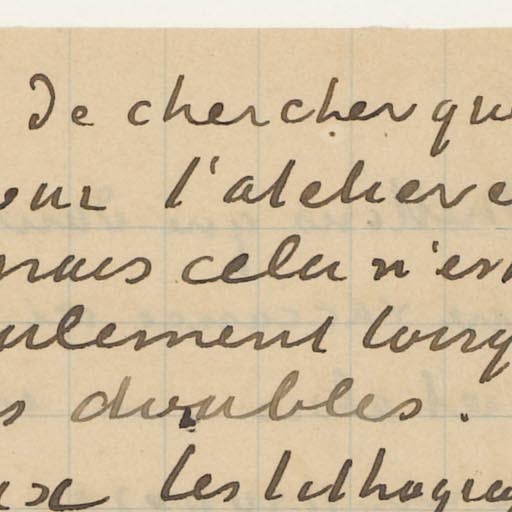 de chercher que
our l'atelier e
mais cela n'es
ulement lorsq
s doubles.
ux les lithogra